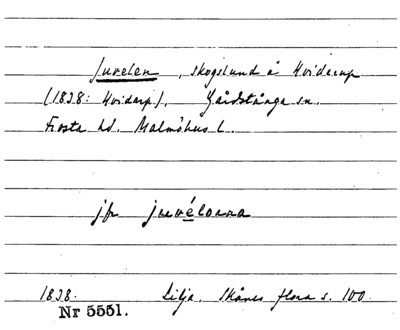 Juvelen, skogslund å Hvidarup
(1838: Hvidarp), Gårdstånga sn.
Frosta hd. Malmöhus l.
jfr juvélorna
1838. Lilja, Skånes flora s. 100
Nr 5551.